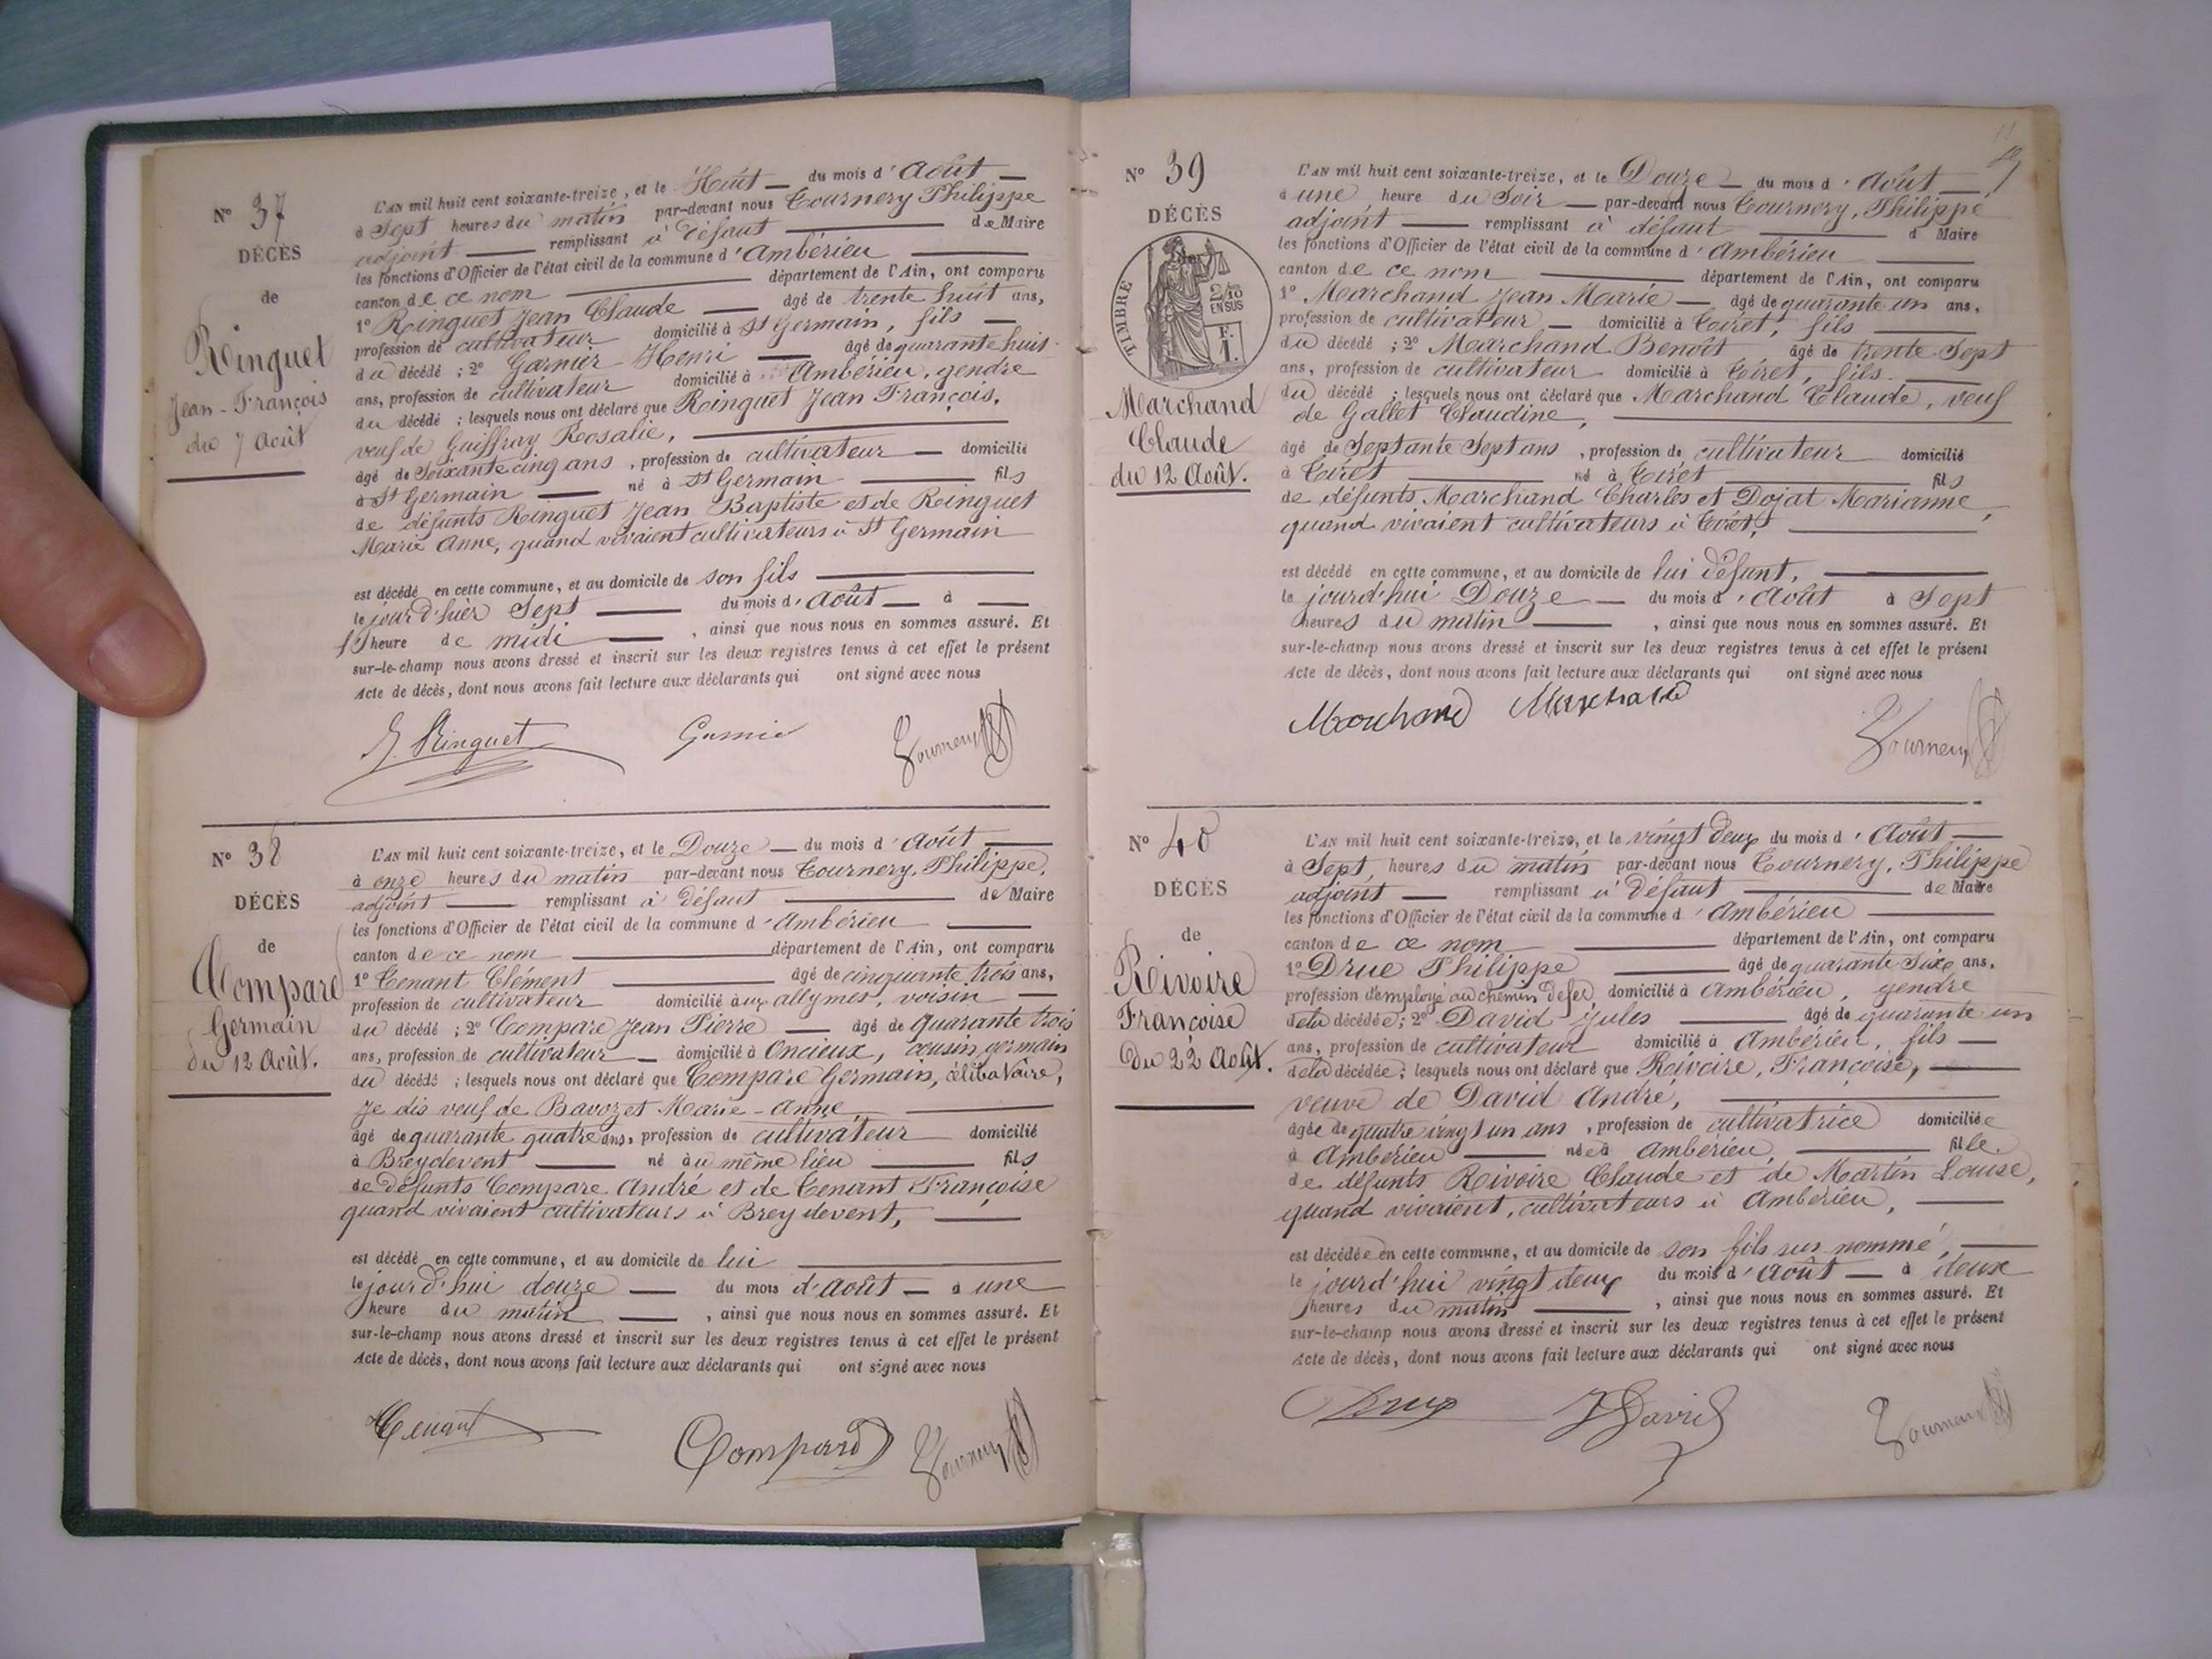 N° 37
DÉCÈS
de
Roinguet
Jean-François
du 7 Août
L'AN mil huit cent soixante-treize, et le Huit — du mois d'Août —
à Sept heures du matin par-devant nous Tournery Philippe
adjoint — remplissant à défaut — de Maire
les fonctions d'Officier de l'état civil de la commune d'Ambérieu —
canton de ce nom — département de l'Ain, ont comparu
1° Roinguet Jean Claude — âgé de trente huit ans,
profession de cultivateur domicilié à St Germain, fils —
du décédé ; 2° Garnier Henri — âgé de quarante huit
ans, profession de cultivateur domicilié à Ambérieu, gendre
du décédé ; lesquels nous ont déclaré que Roinguet Jean François,
veuf de Guiffray Rosalie, —
âgé de Soixante cinq ans, profession de cultivateur — domicilié
à St Germain — né à St Germain — fils
de défunts Roinguet Jean Baptiste et de Roinguet
Marie Anne, quand vivaient cultivateurs à St Germain
est décédé en cette commune, et au domicile de son fils —
le jour d'hier Sept — du mois d'Août — à —
l'heure de midi —, ainsi que nous nous en sommes assuré. Et
sur-le-champ nous avons dressé et inscrit sur les deux registres tenus à cet effet le présent
Acte de décès, dont nous avons fait lecture aux déclarants qui ont signé avec nous
Roinguet Garnier Tournery
N° 38
DÉCÈS
de
Compare
Germain
du 12 Août.
L'AN mil huit cent soixante-treize, et le Douze — du mois d'Août —
à onze heures du matin par-devant nous Tournery, Philippe,
adjoint — remplissant à défaut — de Maire
les fonctions d'Officier de l'état civil de la commune d'Ambérieu —
canton de ce nom — département de l'Ain, ont comparu
1° Tenant Clément — âgé de cinquante trois ans,
profession de cultivateur domicilié aux allymes, voisin —
du décédé ; 2° Compare Jean Pierre — âgé de quarante trois
ans, profession de cultivateur — domicilié à Oncieux, cousin germain
du décédé ; lesquels nous ont déclaré que Compare Germain, célibataire,
je dis veuf de Bavozet Marie-Anne —
âgé de quarante quatre ans, profession de cultivateur domicilié
à Breydevent — né au même lieu — fils
de défunts Compare André et de Tenant Françoise
quand vivaient cultivateurs à Breydevent, —
est décédé en cette commune, et au domicile de lui —
le jourd'hui douze — du mois d'août — à une
heure du matin —, ainsi que nous nous en sommes assuré. Et
sur-le-champ nous avons dressé et inscrit sur les deux registres tenus à cet effet le présent
Acte de décès, dont nous avons fait lecture aux déclarants qui ont signé avec nous
Tenant Compare Tournery
N° 39
DÉCÈS
TIMBRE
2/10
EN SUS
F.
1.
Marchand
Claude
du 12 Août.
L'AN mil huit cent soixante-treize, et le Douze — du mois d'Août —
à une heure du Soir — par-devant nous Tournery, Philippe
adjoint — remplissant à défaut — d Maire
les fonctions d'Officier de l'état civil de la commune d'Ambérieu —
canton de ce nom — département de l'Ain, ont comparu
1° Marchand Jean Marie — âgé de quarante un ans,
profession de cultivateur — domicilié à Tiret, fils —
du décédé ; 2° Marchand Benoît âgé de trente Sept
ans, profession de cultivateur domicilié à Tiret, fils —
du décédé ; lesquels nous ont déclaré que Marchand Claude, veuf
de Gallet Claudine, —
âgé de Septante Sept ans, profession de cultivateur domicilié
à Tiret — né à Tiret — fils
de défunts Marchand Charles et Dojat Marianne,
quand vivaient cultivateurs à Tiret, —
est décédé en cette commune, et au domicile de lui défunt, —
le jourd'hui Douze — du mois d'Août à Sept
heures du matin —, ainsi que nous nous en sommes assuré. Et
sur-le-champ nous avons dressé et inscrit sur les deux registres tenus à cet effet le présent
Acte de décès, dont nous avons fait lecture aux déclarants qui ont signé avec nous
Marchand Marchand Tournery
N° 40
DÉCÈS
de
Rivoire
Françoise
Du 22 Août.
L'AN mil huit cent soixante-treize, et le vingt deux du mois d'Août —
à Sept, heures du matin par-devant nous Tournery, Philippe
adjoint — remplissant à défaut — de Maire
les fonctions d'Officier de l'état civil de la commune d'Ambérieu —
canton de ce nom — département de l'Ain, ont comparu
1° Drue Philippe — âgé de quarante Six ans,
profession d'employé au chemin de fer, domicilié à Ambérieu, gendre
de la décédée ; 2° David Jules — âgé de quarante un
ans, profession de cultivateur domicilié à Ambérieu, fils —
de la décédée ; lesquels nous ont déclaré que Rivoire, Françoise, —
veuve de David André, —
âgée de quatre vingt un ans, profession de cultivatrice domiciliée
à Ambérieu — née à Ambérieu, — fille
de défunts Rivoire Claude et de Martin Louise,
quand vivaient, cultivateurs à Ambérieu, —
est décédée en cette commune, et au domicile de son fils sus nommé, —
le jourd'hui vingt deux du mois d'Août — à deux
heures du matin —, ainsi que nous nous en sommes assuré. Et
sur-le-champ nous avons dressé et inscrit sur les deux registres tenus à cet effet le présent
Acte de décès, dont nous avons fait lecture aux déclarants qui ont signé avec nous
Drue J David Tournery